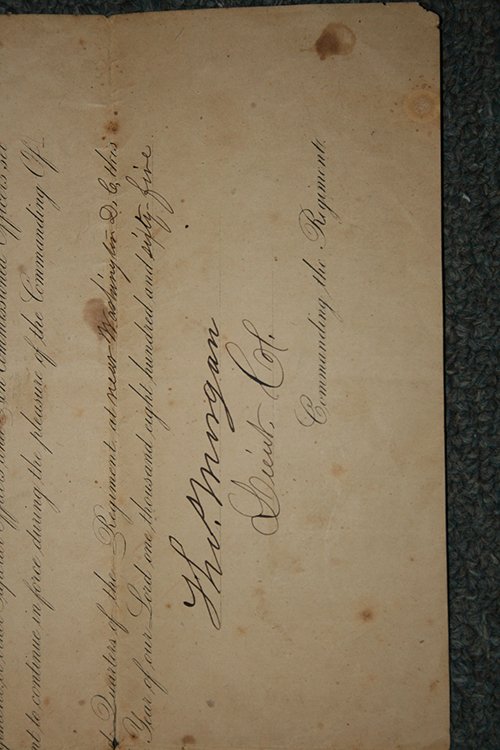 Officers and Non Commissioned Officers set
nt to continue in force during the pleasure of the Commanding Of
d Quarters of the Regiment at near Washington D.C. this
Year of our Lord one thousand eight hundred and sixty-five.
Tho. Morgan
Lieut. Col.
Commanding the Regiment.